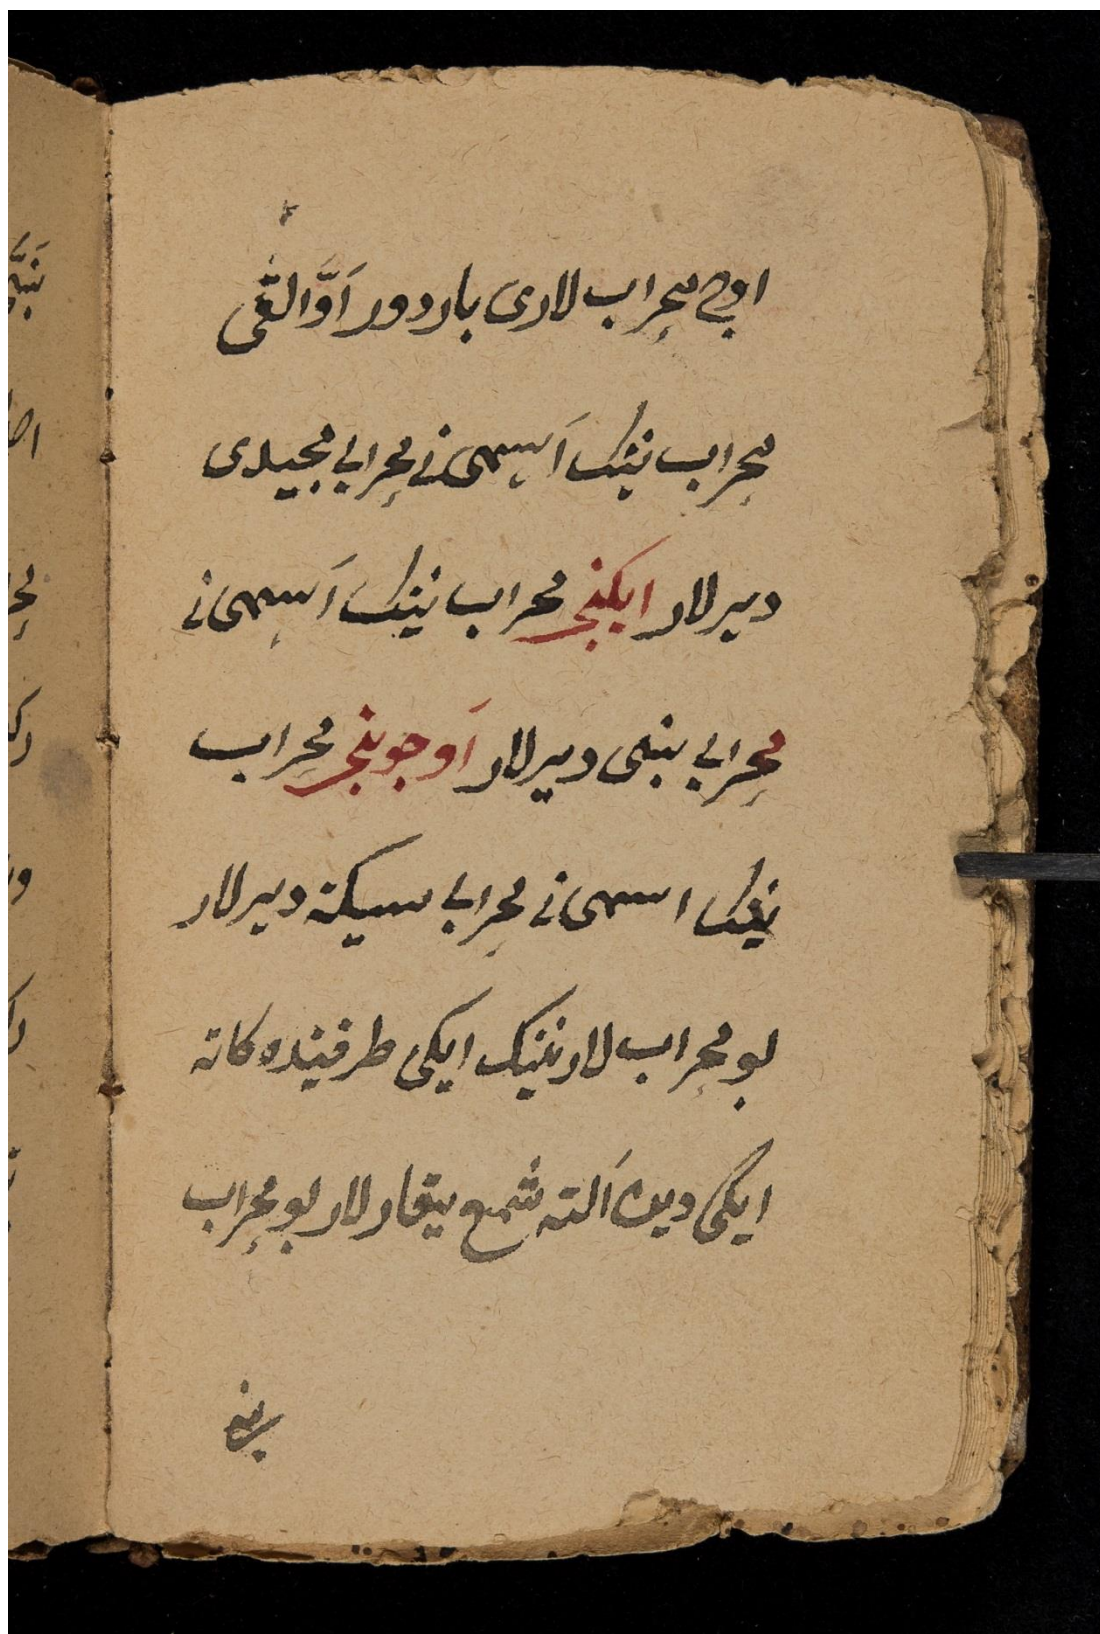 اوچ محِراب لاری باردور اَوَّالقّی
محِراب نینک اَسِمی نی محِرابی مجیدی
دیرلار ایکنجی محراب نینک اَسِمی نی
محِرابی بنبی دیرلار اَوجونجی محِراب
نینک اسمی نی محِرابی سیکنه دیرلار
بو محِراب لارنینک ایکی طرفینده کاته
ایکی دیوه اَلته شمع یتقارلار بو محِراب